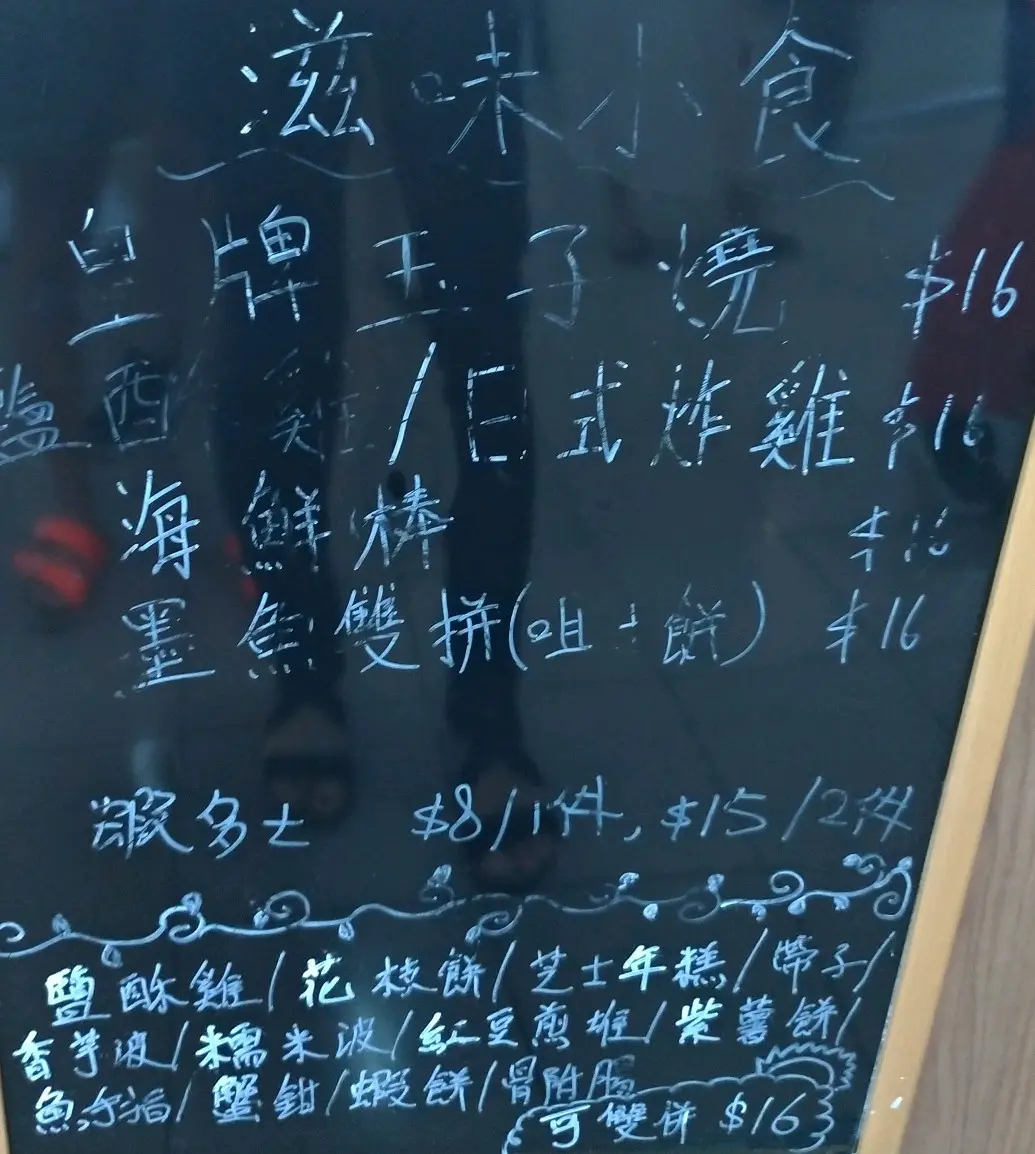 滋味小食
皇牌玉子燒 $16
鹽酥雞/日式炸雞 $16
海鮮棒 $16
墨魚雙拼(咀+餅) $16
蝦多士 $8/1件, $15/2件
鹽酥雞/花枝餅/芝士年糕/帶子/
香芋波/糯米波/紅豆煎堆/紫薯餅/
魚手指/蟹鉗/蝦餅/骨腸
可雙併 $16